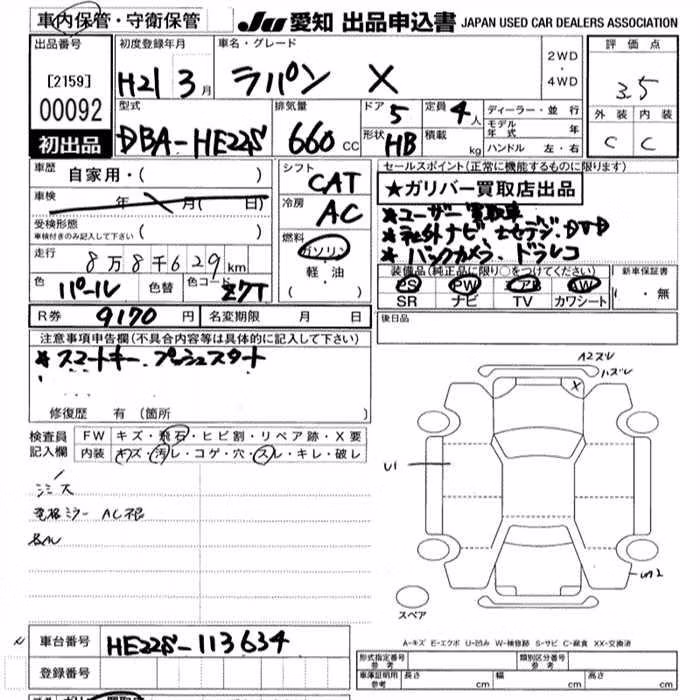 車内保管・守衛保管
JU 愛知 出品申込書 JAPAN USED CAR DEALERS ASSOCIATION
出品番号 初度登録年月 車名・グレード 2WD・4WD 評価点
[2159] H21 3月 ラパン X 3.5
00092 型式 排気量 ドア 5 定員 4人 ディーラー・並行 外装 内装
モデル年式 年
初出品 DBA-HE22S 660 CC 形状 HB 積載 kg ハンドル 左・右 C C
車歴 自家用・( ) シフト CAT セールスポイント(正常に機能するものに限ります)
車検 年 月( 日) 冷房 AC ★ガリバー買取店出品
受検形態 ( )
車検付きのみ記入して下さい
★ユーザー買取車
走行 8万8千629km 燃料 ガソリン・軽・油 ( )
★社外ナビ
★バックカメラ ドラレコ
色 パール 色替 色コード Z7T
装備品(純正品に限り○をつけてください) 新車保証書
PS PW エアB AW
SR ナビ TV カワシート ・無
R券 9170円 名変期限 月 日 後日品
注意事項申告欄(不具合内容等は具体的に記入して下さい)
★スマートキー プッシュスタート
修復歴 有 (箇所 )
検査員記入欄 FW キズ・飛石・ヒビ割・リペア跡・X要
内装 キズ・汚レ・コゲ・穴・スレ・キレ・破レ
A2スレ
ハズレ
X
U1
電格ミラー AC
スペア
A-キズ E-エクボ U-凹み W-補修跡 S-サビ C-腐食 XX-交換済
車台番号 HE22S-113634
登録番号
形式指定番号 参考 類別区分番号 参考
車庫証明用 参考 長さ cm 幅 cm 高さ cm